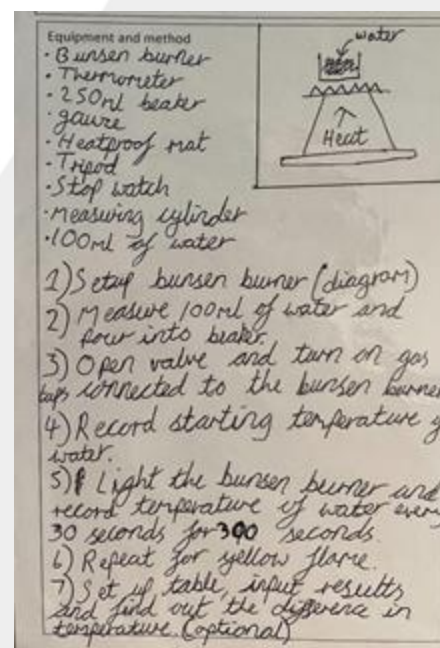 Equipment and method
• Bunsen burner
• Thermometer
• 250ml beaker
• gauze
• Heatproof mat
• Tripod
• Stop watch
• Measuring cylinder
• 100ml of water
water
Heat
1) Setup bunsen burner (diagram)
2) Measure 100ml of water and
pour into beaker.
3) Open valve and turn on gas
taps connected to the bunsen burner
4) Record starting temperature
water.
5) Light the bunsen burner and
record temperature of water every
30 seconds for 300 seconds.
6) Repeat for yellow flame.
7) Set up table, input results
and find out the difference in
temperature. (optional)